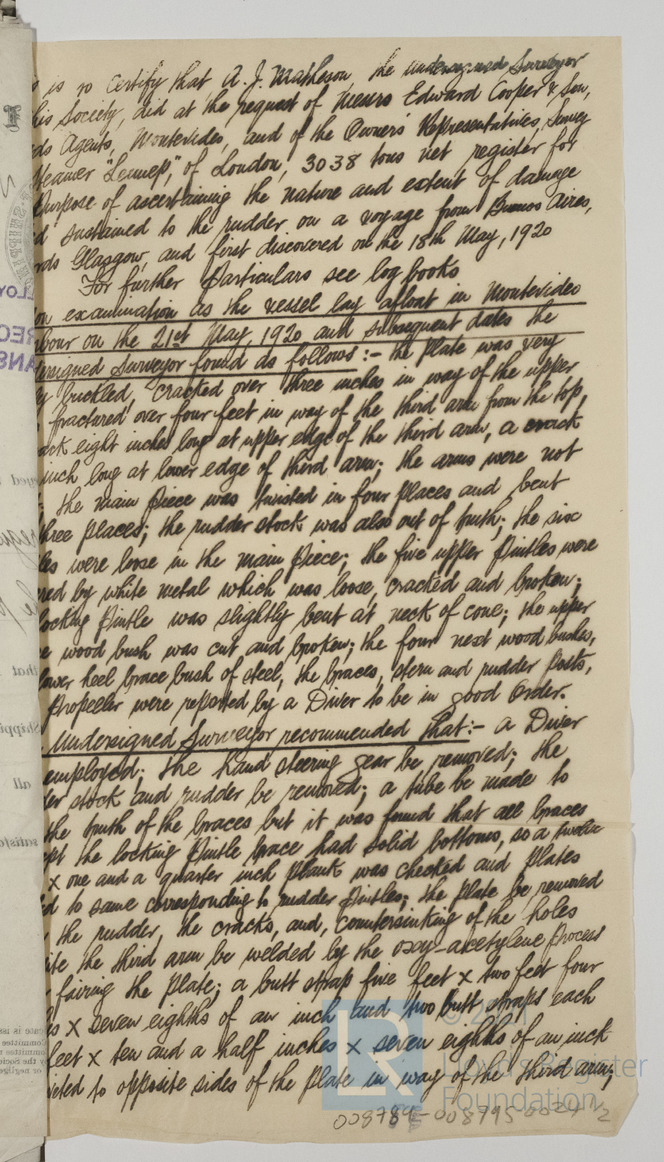 s is to certify that A. J. Matheson, the undersigned Surveyor
his Society, did at the request of Messrs Edward Cooper & Son,
ds Agents, Montevideo, and of the Owners' Representatives, survey
teamer "Lennep", of London, 3038 tons net register for
purpose of ascertaining the nature and extent of damage
d sustained to the rudder on a voyage from Buenos Aires,
rds Glasgow, and first discovered on the 18th May, 1920
For further particulars see log books
on examination as the vessel lay afloat in Montevideo
bour on the 21st May, 1920 and subsequent dates the
ersigned Surveyor found as follows:- the plate was very
ly buckled, cracked over three inches in way of the upper
fractured over four feet in way of the third arm from the top,
ack eight inches long at upper edge of the third arm, a crack
inch long at lower edge of third arm; the arms were not
the main piece was twisted in four places and bent
three places; the rudder stock was also out of truth; the six
les were loose in the main piece; the five upper pintles were
ered by white metal which was loose, cracked and broken;
locking pintle was slightly bent at neck of cone; the upper
e wood bush was cut and broken; the four next wood bushes,
lower heel brace bush of steel, the braces, stern and rudder posts,
propeller were reported by a Diver to be in good order.
Undersigned Surveyor recommended that:- a Diver
employed; the hand steering gear be removed; the
er stock and rudder be removed; a tube be made to
the truth of the braces but it was found that all braces
ept the locking pintle brace had solid bottoms, so a twelve
x one and a quarter inch plank was checked and plates
ed to same corresponding to rudder pintles; the plate be removed
the rudder, the cracks, and, countersinking of the holes
ite the third arm be welded by the oxy-acetylene process
fairing the plate; a butt strap five feet x two feet four
es x seven eighths of an inch and two butt straps each
feet x ten and a half inches x seven eighths of an inch
veted to opposite sides of the plate in way of the third arm;
LR
Lloyd's Register
Foundation
008789-008795-0024 2